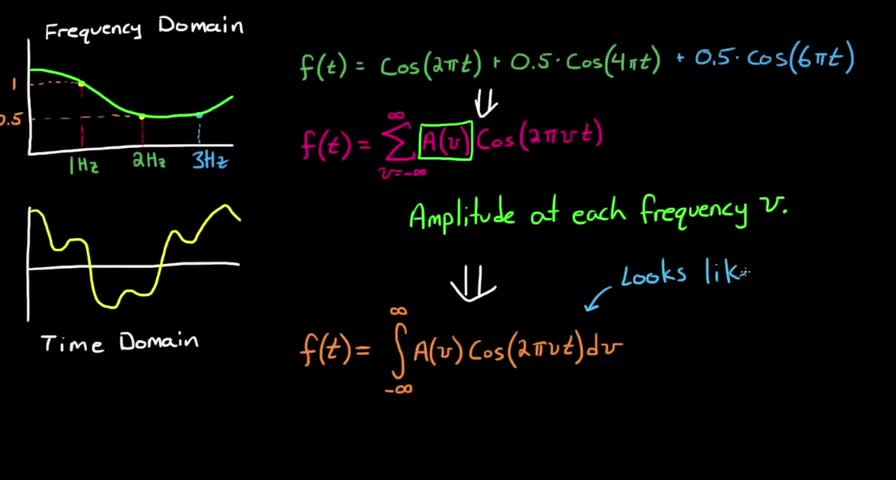 Frequency Domain
1
0.5
1Hz 2Hz 3Hz
Time Domain
f(t) = Cos(2πt) + 0.5·Cos(4πt) + 0.5·Cos(6πt)
⇓
f(t) = ∑_{v=-∞}^{∞} A(v) Cos(2πvt)
Amplitude at each frequency v.
⇓
Looks lik
f(t) = ∫_{-∞}^{∞} A(v) Cos(2πvt)dv